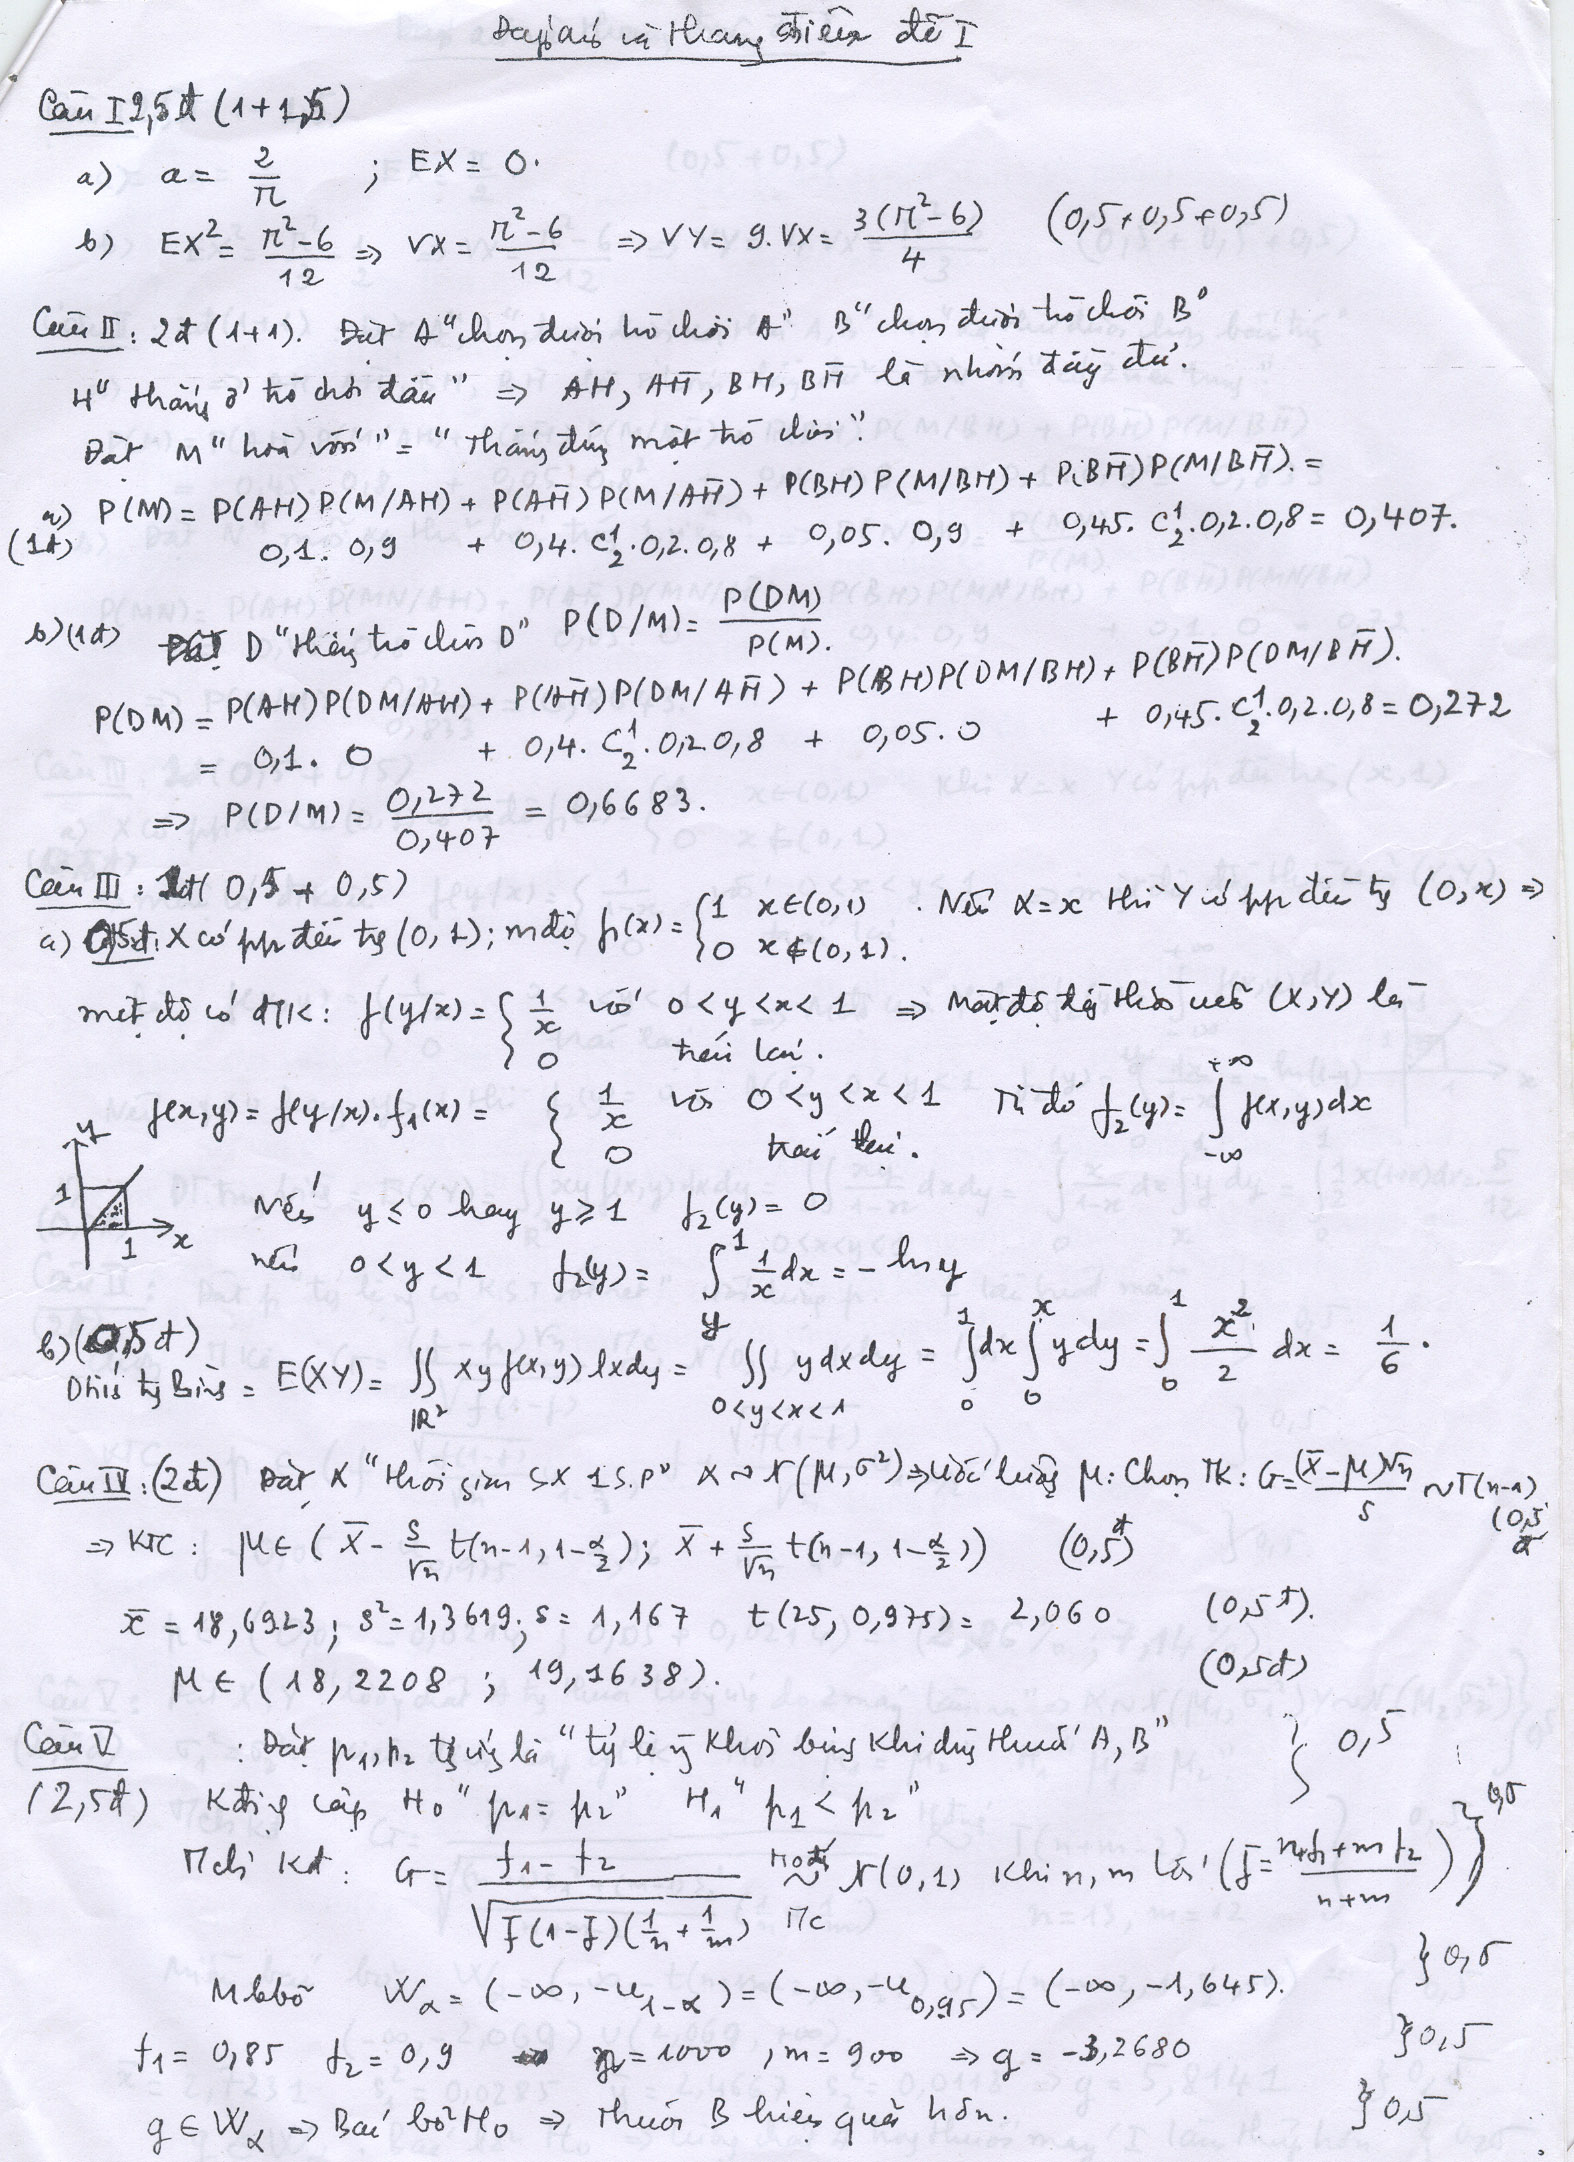 Đáp án và thang điểm đề I
Câu I 2,5đ (1+1,5)
a) a = 2/π ; EX = 0.
b) EX² = (π²-6)/12 ⇒ VX = (π²-6)/12 ⇒ VY = 9.VX = 3(π²-6)/4 (0,5+0,5+0,5)
Câu II: 2đ (1+1). Đặt A "chọn được trò chơi A" B "chọn được trò chơi B"
H "thắng ở trò chơi đầu" ⇒ AH, AH̄, BH, BH̄ là nhóm đầy đủ.
Đặt M "hoà vốn" = "Thắng đúng một trò chơi".
a) P(M) = P(AH)P(M/AH) + P(AH̄)P(M/AH̄) + P(BH)P(M/BH) + P(BH̄)P(M/BH̄). =
(1đ) 0,1. 0,9 + 0,4. C₂¹.0,2.0,8 + 0,05. 0,9 + 0,45. C₂¹.0,2.0,8 = 0,407.
b)(1đ) Đặt D "thắng trò chơi D" P(D/M) = P(DM)/P(M).
P(DM) = P(AH)P(DM/AH) + P(AH̄)P(DM/AH̄) + P(BH)P(DM/BH) + P(BH̄)P(DM/BH̄).
= 0,1. 0 + 0,4. C₂¹. 0,2.0,8 + 0,05.0 + 0,45. C₂¹.0,2.0,8 = 0,272
⇒ P(D/M) = 0,272/0,407 = 0,6683.
Câu III: 1đ (0,5 + 0,5)
a) 0,5đ. X có pp đều tr (0,1); m độ f₁(x) = { 1 x∈(0,1) . Nếu X=x thì Y có pp đều tr (0,x) ⇒
0 x∉(0,1).
mật độ có ĐK: f(y/x) = { 1/x với 0<y<x<1 ⇒ Mật độ đồng thời của (X,Y) là
0 trái lại.
f(x,y) = f(y/x).f₁(x) = { 1/x với 0<y<x<1 Từ đó f₂(y) = ∫_{-∞}^{+∞} f(x,y)dx
0 trái lại.
y
1
1 x
Nếu y ≤ 0 hay y ≥ 1 f₂(y) = 0
nếu 0<y<1 f₂(y) = ∫_y^1 1/x dx = -lny
b)(0,5đ)
DTích tr Bình = E(XY) = ∬_{ℝ²} xy f(x,y)dxdy = ∬_{0<y<x<1} ydxdy = ∫_0^1 dx ∫_0^x ydy = ∫_0^1 x²/2 dx = 1/6.
Câu IV: (2đ) Đặt X "thời gian SX 1 S.P" X ~ N(μ,σ²) ⇒ ước lượng μ: Chọn TK: G = (X̄-μ)√n/s ~ T(n-1)
(0,5đ
⇒ KTC: μ ∈ ( X̄ - s/√n t(n-1, 1-α/2); X̄ + s/√n t(n-1, 1-α/2)) (0,5đ)
x̄ = 18,6923; s² = 1,3619; s = 1,167 t(25, 0,975) = 2,060 (0,5đ).
μ ∈ (18,2208 ; 19,1638). (0,5đ)
Câu V : Đặt p₁, p₂ tư ứng là "tỷ lệ ng khỏi bệnh khi dùng thuốc A, B" } 0,5
(2,5đ) Kđịnh cặp H₀ "p₁ = p₂" H₁ "p₁ < p₂"
T chỉ Kđ: G = (f₁ - f₂)/√(f̄(1-f̄)(1/n + 1/m)) ~ N(0,1) khi n, m lớn (f̄ = (nf₁+mf₂)/(n+m)) } 0,5
M bbỏ W_α = (-∞, -u_{1-α}) = (-∞, -u_{0,95}) = (-∞, -1,645). } 0,5
f₁ = 0,85 f₂ = 0,9 n = 1000, m = 900 ⇒ g = -3,2680 } 0,5
g ∈ W_α ⇒ Bác bỏ H₀ ⇒ thuốc B hiệu quả hơn. } 0,5